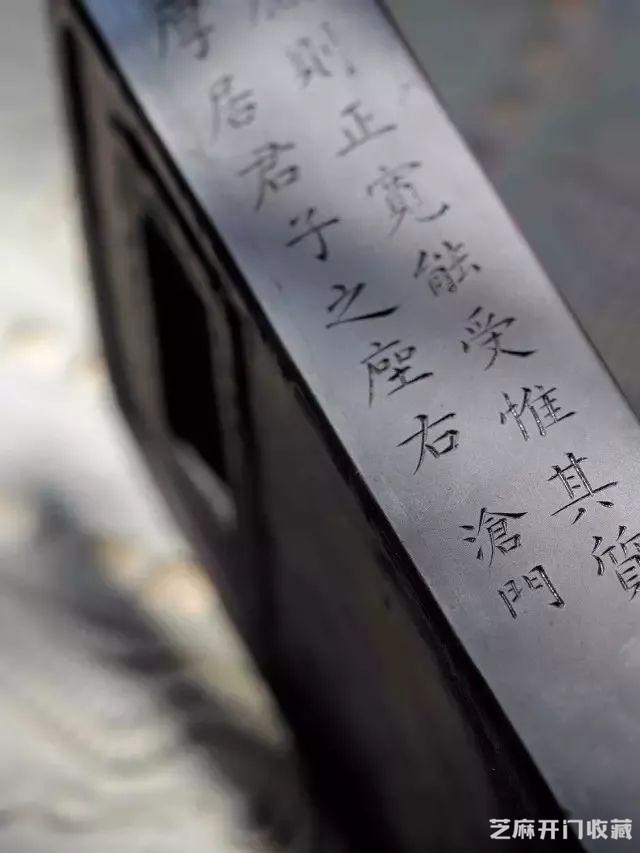 則正寬能受惟其質
厚居君子之座右
滄門
芝麻开门收藏